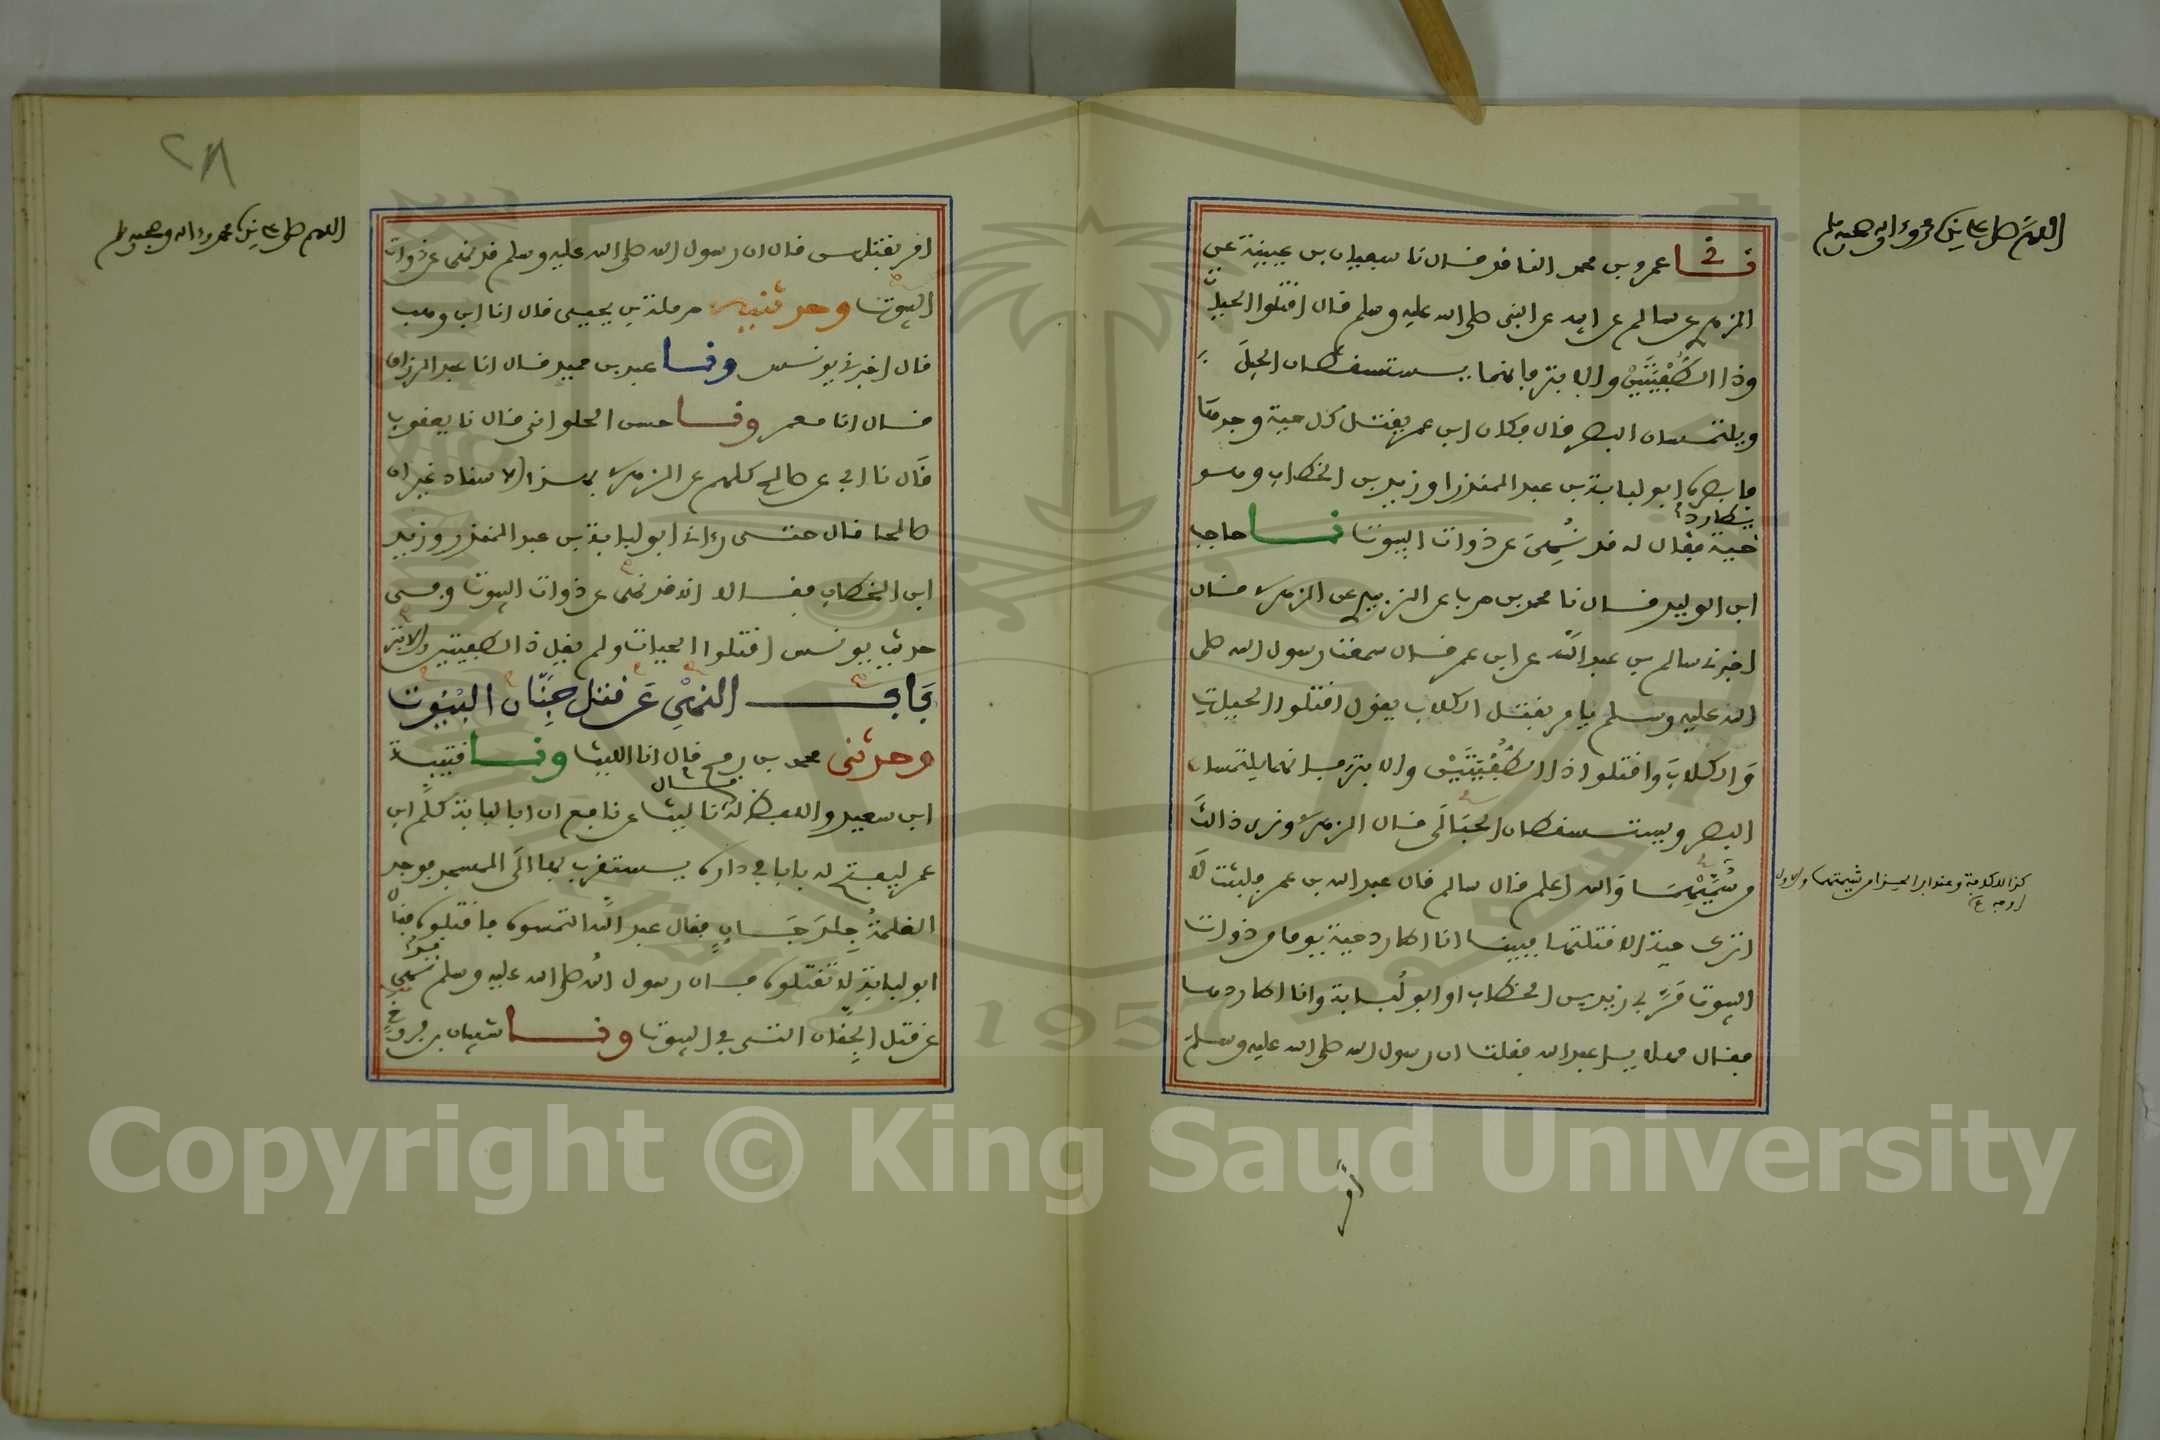 اللهم صل على سيدنا محمد وءاله وصحبه وسلم
نا عمرو بن محمد الناقد قال نا سفيان بن عيينة عن
الزهري عن سالم عن ابيه عن النبي صلى الله عليه وسلم قال اقتلوا الحيات
وذا الطُّفْيَتَيْنِ والابتر فانهما يستسقطان الحبل
ويلتمسان البصر قال فكان ابن عمر يقتل كل حية وجدها
فابصره ابو لبابة بن عبد المنذر او زيد بن الخطاب وهو
يطارد
حية فقال له قد نُهِيَ عن ذوات البيوت نا حاجب
ابن الوليد قال نا محمد بن حرب عن الزبيدي عن الزهري قال
اخبرني سالم بن عبد الله عن ابن عمر قال سمعت رسول الله صلى
الله عليه وسلم يامر بقتل الكلاب يقول اقتلوا الحيات
وَالكلابَ واقتلوا ذا الطُّفْيَتَيْنِ والابتر فانهما يلتمسان
البصر ويستسقطان الحبَالَى قال الزهري ونرى ذالك
من سُمَّيْهِمَا وَالله اعلم قال سالم قال عبد الله بن عمر فلبثت لا
اترى حية الا قتلتها فبينا انا اطارد حية يوما من ذوات
البيوت مَرَّ بي زيد بن الخطاب او ابو لُبابة وانا اطاردها
فقال مهلا يا عبد الله فقلت ان رسول الله صلى الله عليه وسلم
٢٨
اللهم صل على سيدنا محمد وءاله وصحبه وسلم
امر بقتلهن قال ان رسول الله صلى الله عليه وسلم قد نهى عن ذوات
البيوت وحدثنيه حرملة بن يحيى قال انا ابن وهب
قال اخبرني يونس ونا عبد بن حميد قال انا عبد الرزاق
قال انا معمر ونا حسن الحلواني قال نا يعقوب
قال نا ابي عن صالح كلهم عن الزهري بهذا الاسناد غير ان
صالحا قال حتى رءاني ابو لبابة بن عبد المنذر وزيد
ابن الخطاب فقالا انه قد نهى عن ذوات البيوت وفي
حديث يونس اقتلوا الحيات ولم يقل ذا الطفيتين والابتر
بَابُ النهْيِ عَن قتل جِنَّان البُيُوت
وحدثنى محمد بن رمح قال انا الليث ونا قتيبة
ابن سعيد واللفظ له قال نا ليث عن نافع ان ابا لبابة كلم ابن
عمر ليفتح له بابا في داره يستقرب بها الَى المسجد فوجد
الغلمةُ جِلدَ جَانٍ فقال عبد الله التمسوه فاقتلوه فقال
ابو لبابة لا تقتلوه فان رسول الله صلى الله عليه وسلم نهى
عن قتل الجِنَّان التي في البيوت ونا شيبان بن فروخ